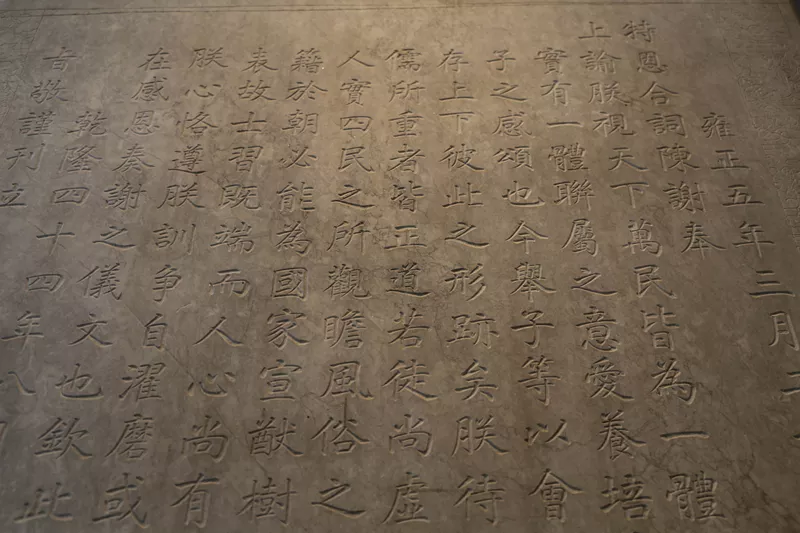 雍正五年三月
特恩合詞陳謝奉
上諭朕視天下萬民皆為一體
實有一體聯屬之意愛養培
子之感頌也今舉子等以會
存上下彼此之形跡矣朕待
儒所重者皆正道若徒尚虛
人實四民之所觀瞻風俗之
籍於朝必能為國家宣猷樹
表故士習既端而人心尚有
朕心恪遵朕訓争自濯磨或
在感恩奏謝之儀文也欽此
乾隆四十四年八
旨敬謹刊立